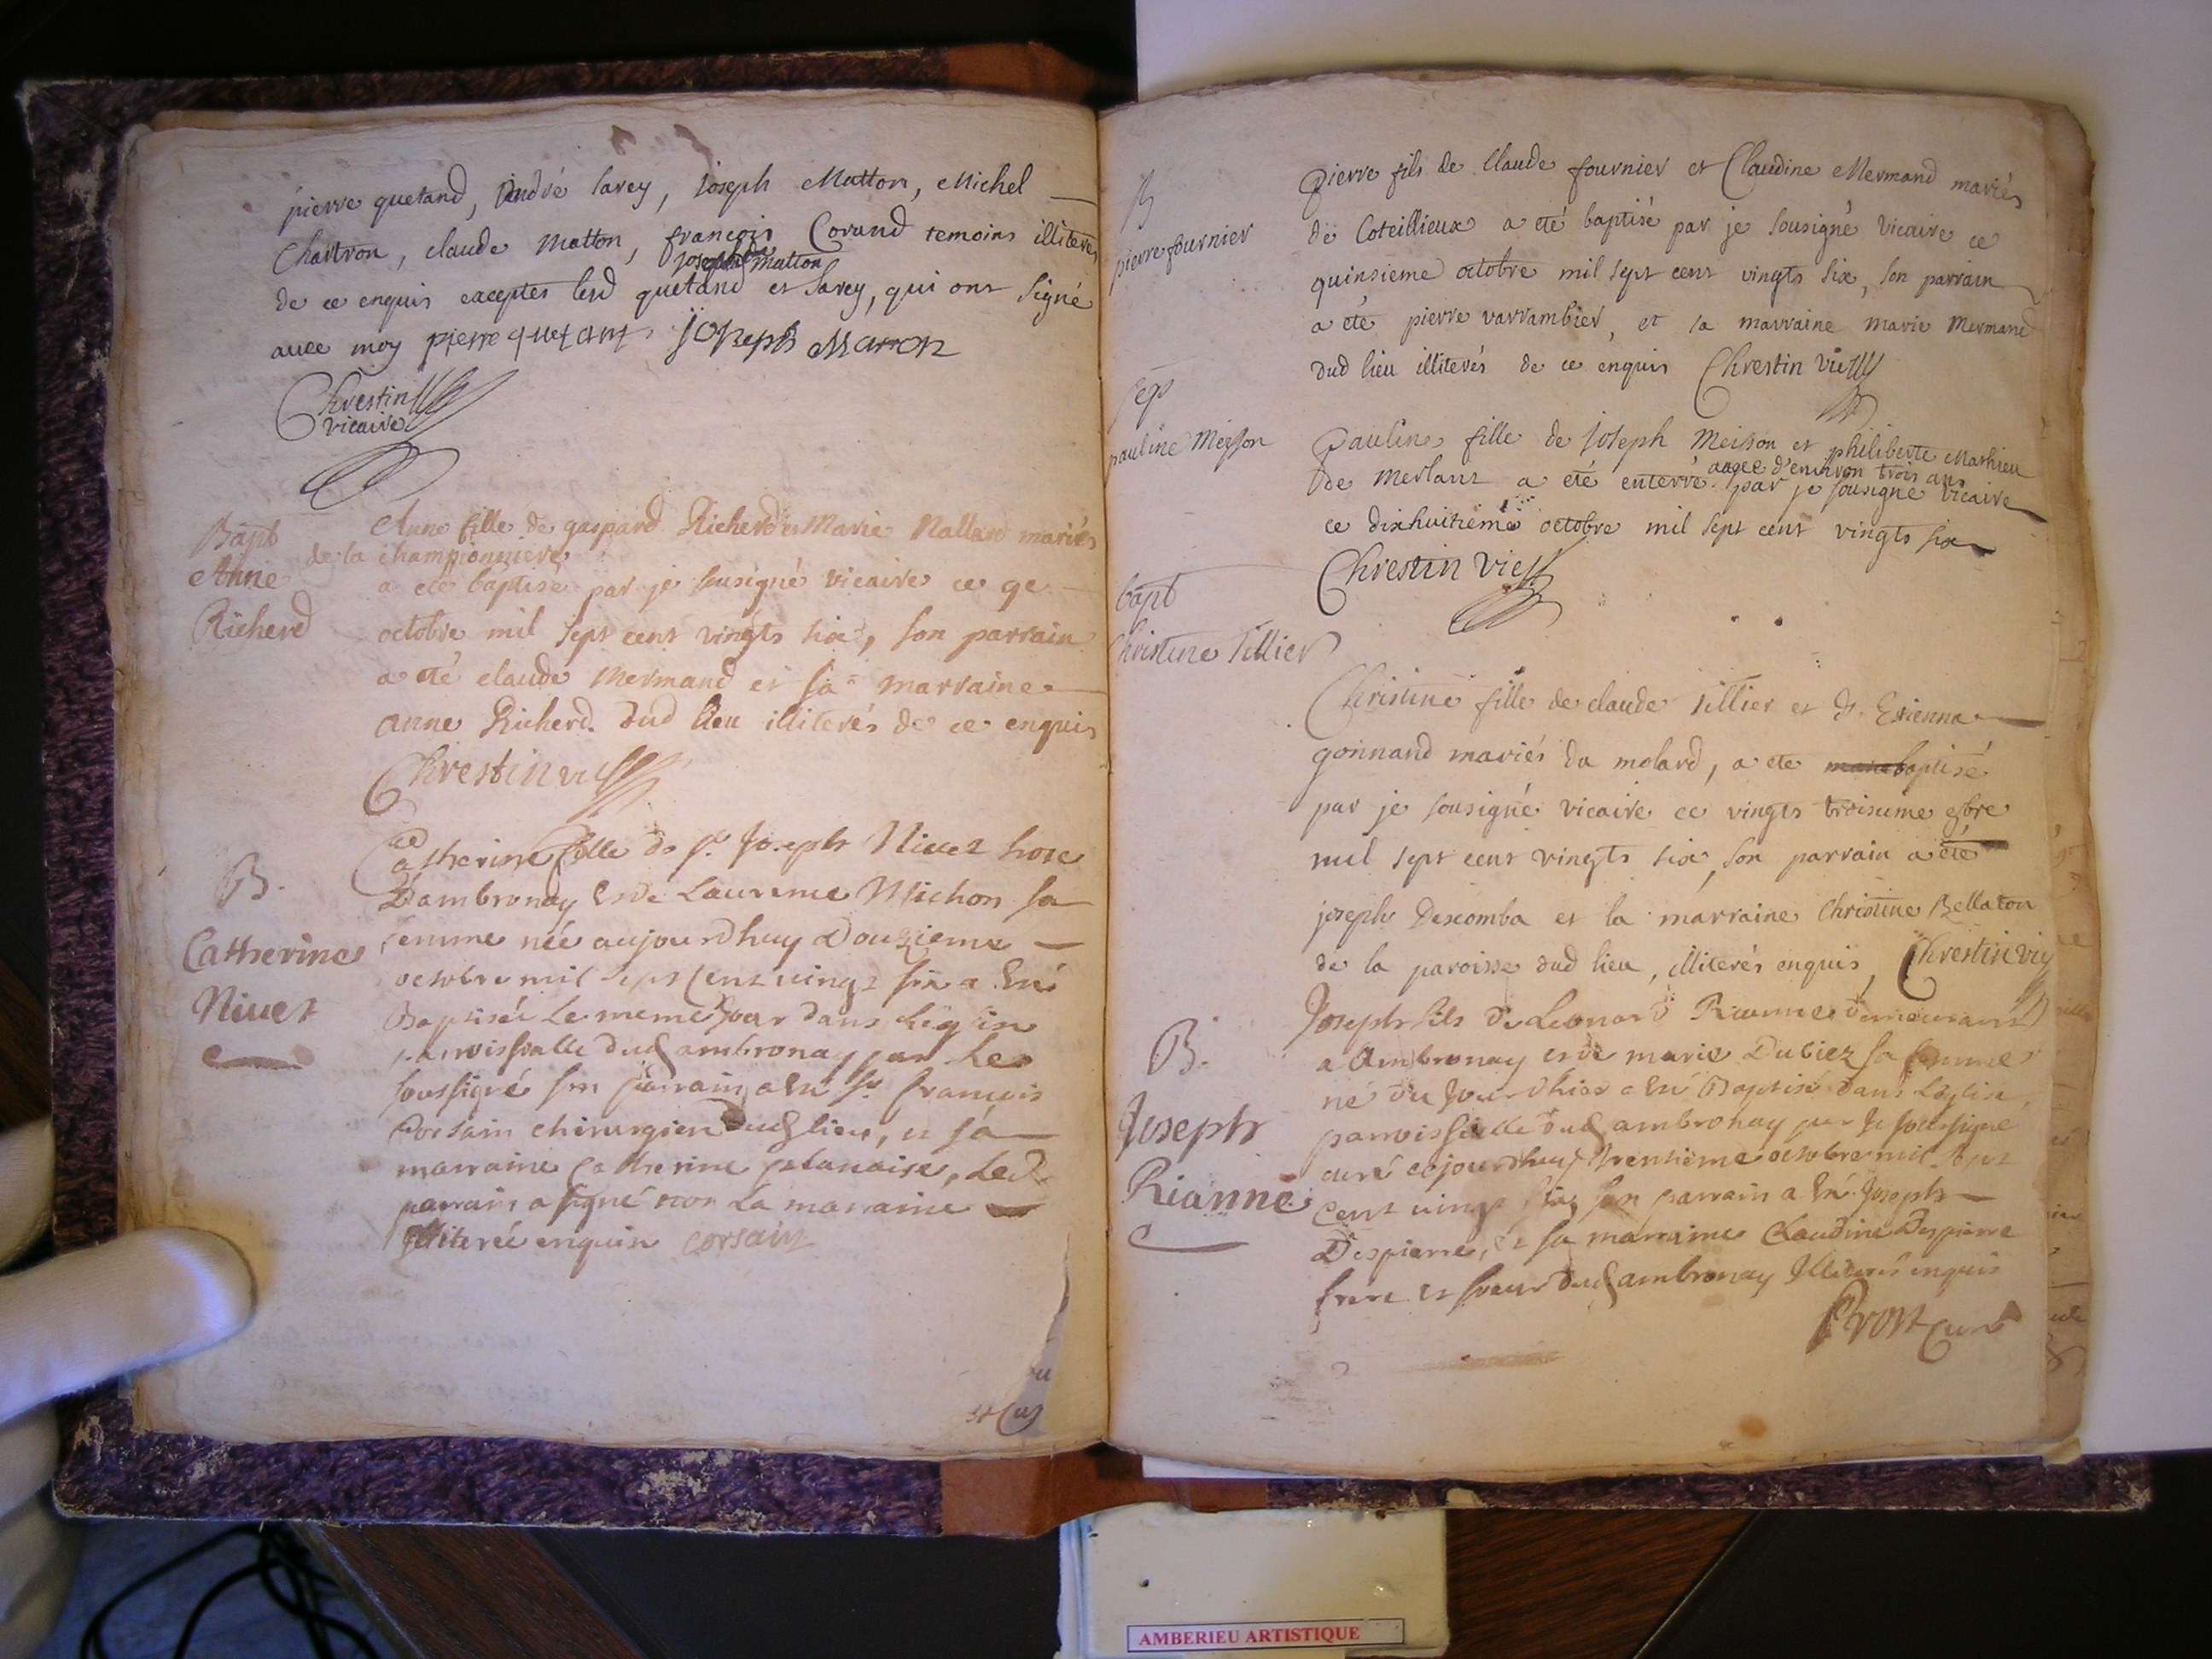 pierre quetand, André Sarey, Joseph Matton, Michel
Chartron, claude Matton, françois Corand temoins illiterés
Joseph Matton
de ce enquis exceptes lesd quetand et Sarey, qui ont signé
avec moy pierre quetant Joseph Matton
Chrestin
vicaire
Bapt
Anne
Richerd
Anne fille de gaspard Richerd et Marie Nallard mariés
de la championniere
a eté baptisé par je sousigné vicaire ce 9e
octobre mil sept cent vingts six, son parrain
a eté claude Mermand et sa marraine
anne Richerd dud lieu illiterés de ce enquis
Chrestin vic
B.
Catherine
Nivet
Catherine fille de sr Joseph Nivet hote
Dambronay et de Laurence Michon sa
femme née aujourdhuy Douzieme
octobre mil sept cent vingt six a été
Baptisée Le meme Jour dans Leglise
parroissialle dud ambronay par Le
soussigné son parrain a été sr françois
Corsain chirurgien dud lieu, et sa
marraine Catherine , Led
parrain a signé non La marraine
Illiterée enquise corsain
B
pierre fournier
Pierre fils de Claude fournier et Claudine Mermand mariés
de Coteillieux a eté baptisé par je sousigné vicaire ce
quinsieme octobre mil sept cent vingts six, son parrain
a été pierre varrambier, et sa marraine marie Mermand
dud lieu illiterés de ce enquis Chrestin vic
Sep
pauline Meisson
Pauline fille de Joseph Meisson et philiberte Mathieu
aagee d'environ trois ans
de Merlant a eté enterré par je sousigné vicaire
ce dixhuitieme octobre mil sept cent vingts six
Chrestin vic
bapt
Christine tillier
Christine fille de claude tillier et d. Etienna
gonnand mariés du molard, a eté baptisé
par je sousigné vicaire ce vingts troisieme 8bre
mil sept cent vingts six, son parrain a eté
joseph Descomba et la marraine Christine Bellaton
de la paroisse dud lieu, illiterés enquis, Chrestin vic
B.
Joseph
Rianne
Joseph fils de Leonard Rianne demeurant
a Ambronay et de marie Dubiez sa femme
né du Jour dhier a été Baptisé dans Leglise
parroissialle dud ambronay par Je soussigné
curé cejourdhuy trentieme octobre mil sept
Cent vingt six son parrain a été Joseph
Despierre, et sa marraine Claudine Despierre
frere et soeur dud ambronay Illiterés enquis
Provt curé
AMBERIEU ARTISTIQUE